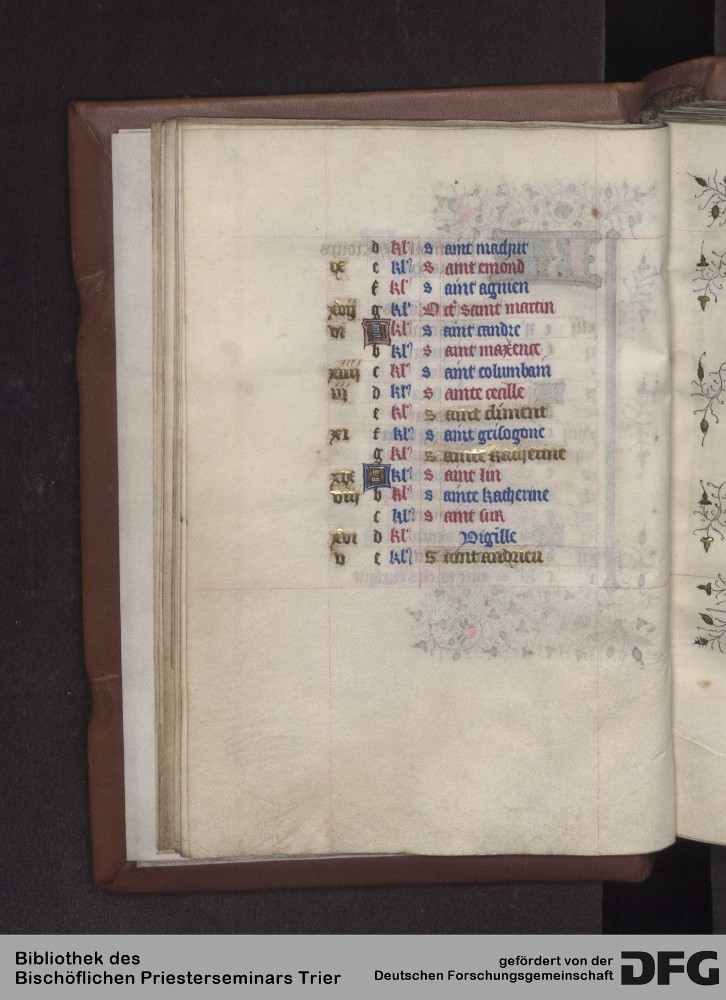 d kl' s aint machut
ix e kl' s aint emond
f kl' s aint agnien
xvij g kl' O ct' saint martin
vi A kl' s aint candre
b kl' s aint maxence
xiiij c kl' s aint columbam
iij d kl' s ainte cecille
e kl' s aint climent
xi f kl' s aint grisogone
g kl' s ainte katherine
xix A kl' s aint lin
viij b kl' s ainte katherine
c kl' s aint sur
xvi d kl' Vigille
v e kl' s aint andrieu
Bibliothek des
Bischöflichen Priesterseminars Trier
gefördert von der
Deutschen Forschungsgemeinschaft
DFG